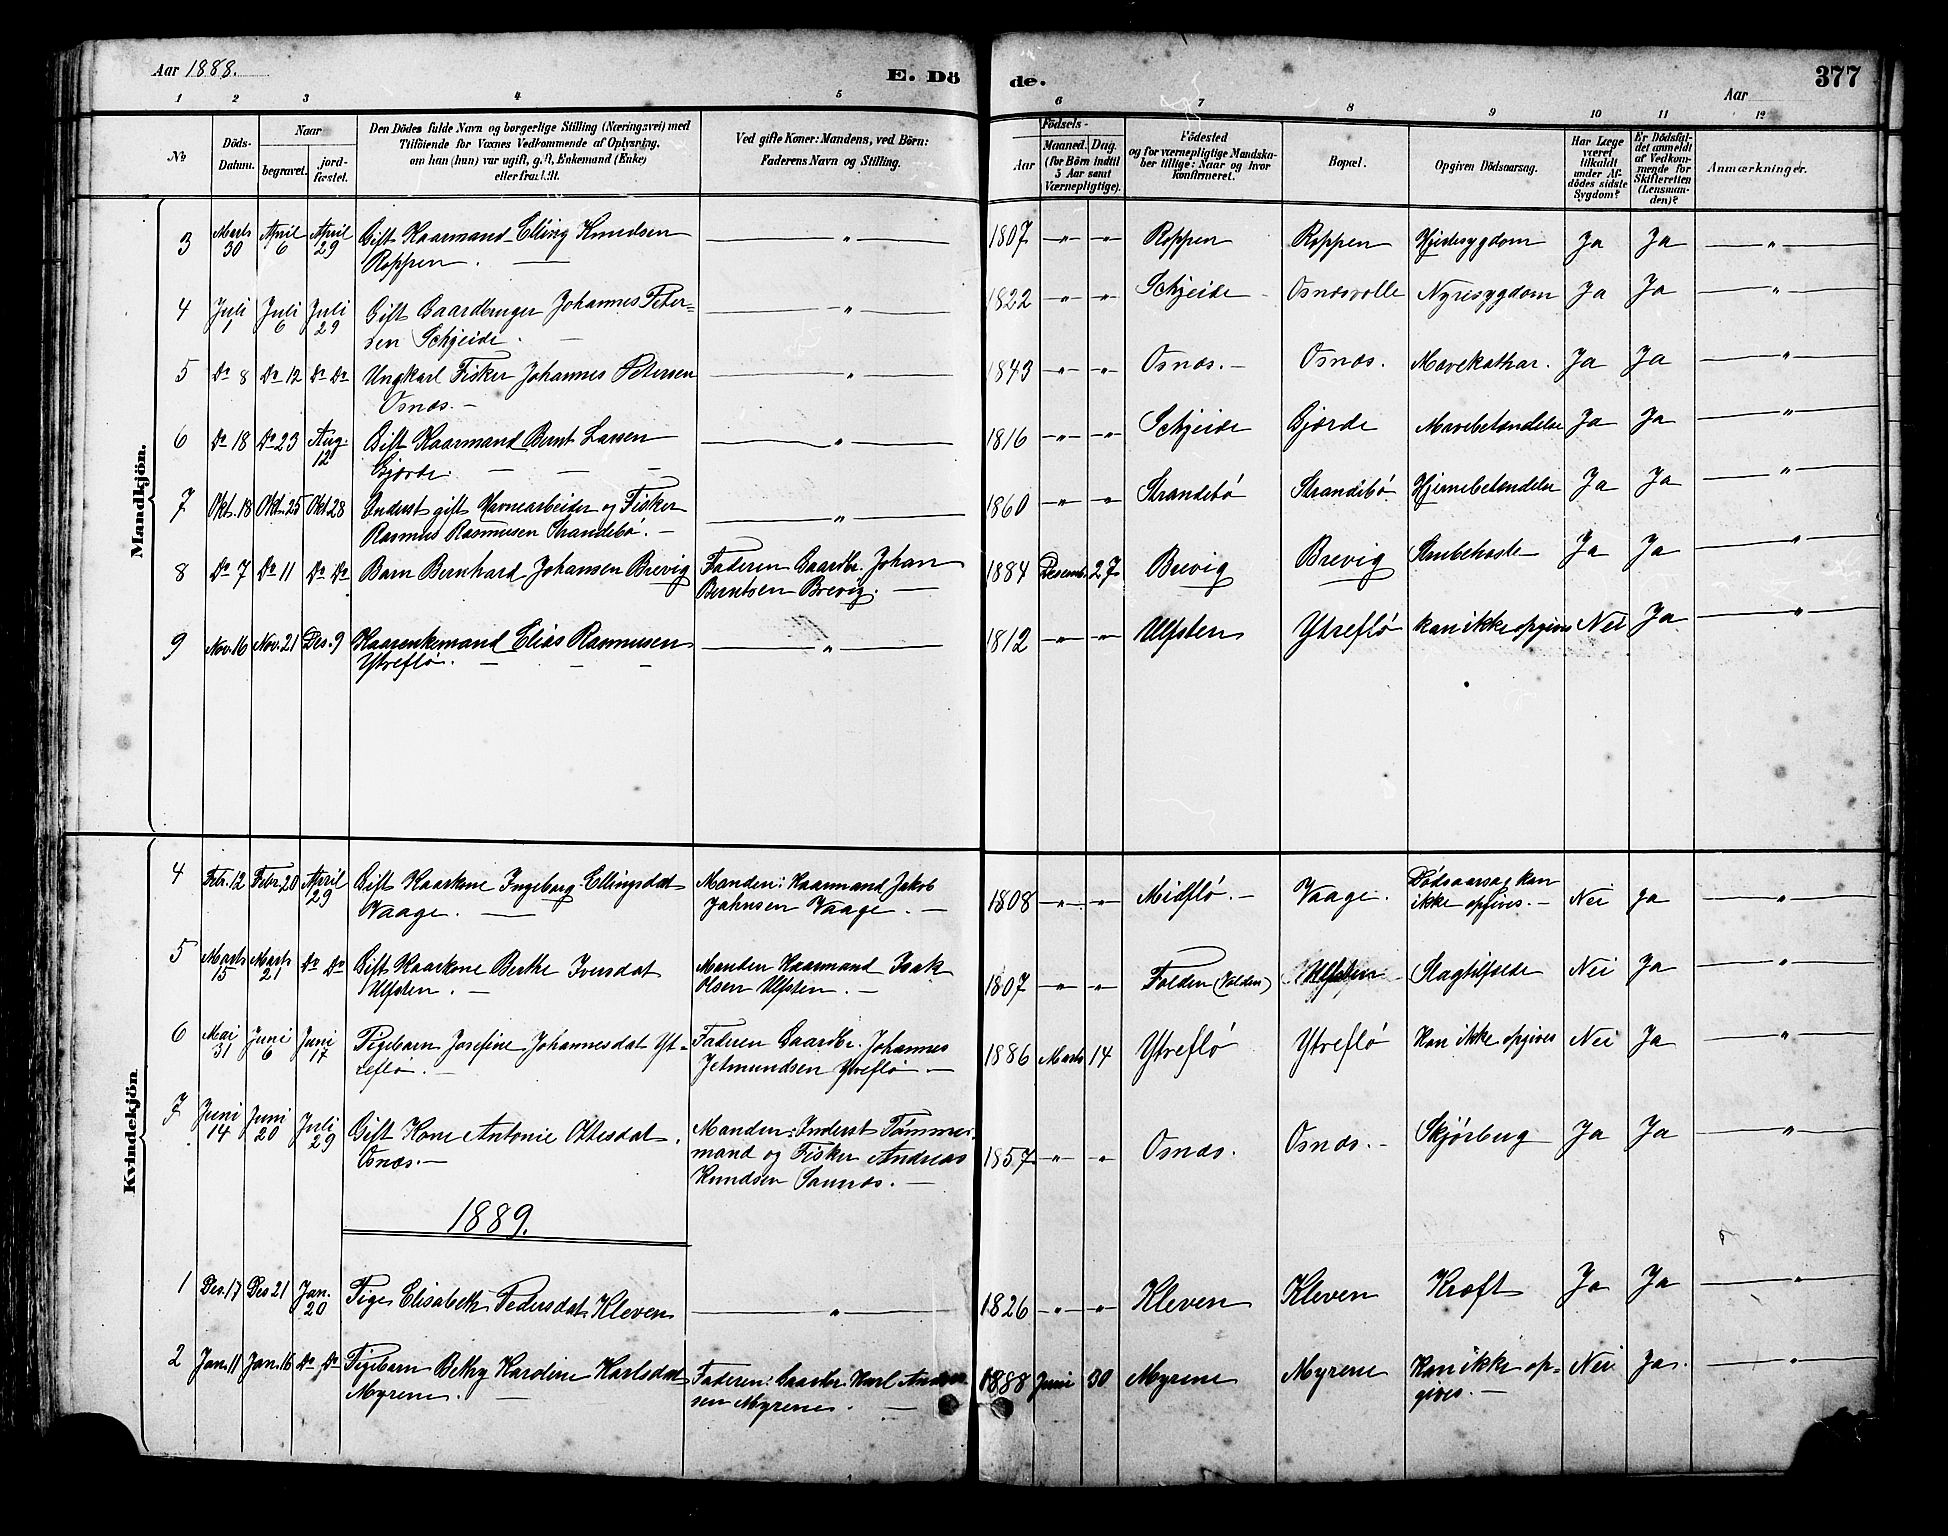 Aar 1888.
E. Dö
de.
Aar
377
1 2 3 4 5 6 7 8 9 10 11 12
No
Döds-
Datum.
Naar
begravet.
jord-
fæstet.
Den Dödes fulde Navn og borgerlige Stilling (Næringsvei) med
Tilföiende for Voxnes Vedkommende af Oplysning,
om han (hun) var ugift, gift, Enkemand (Enke)
eller fraskilt.
Ved gifte Koner: Mandens, ved Börn:
Faderens Navn og Stilling.
Födsels-
Aar
Maaned.
Dag.
(for Börn indtil
5 Aar samt
Værnepligtige).
Födested
og for værnepligtige Mandska-
ber tillige: Naar og hvor
konfirmeret.
Bopæl.
Opgiven Dödsaarsag.
Har Læge
været
tilkaldt
under Af-
dödes sidste
Sygdom?
Er Dödsfal-
det anmeldt
af Vedkom-
mende for
Skifteretten
(Lensman-
den)?
Anmærkninger.
Mandkjön.
3 Marts 30 April 6 April 29 Gift Kaarmand Elling Knudsen
Roppen. — „ 1807 „ „ Roppen Roppen Hjertesygdom Ja Ja „
4 Juli 1 Juli 6 Juli 29 Gift Gaardbruger Johannes Peter-
sen Schjeide. — „ 1822 „ „ Schjeide Osnesvolle Nyresygdom Ja Ja „
5 Do 8 Do 12 Do Do Ungkarl Fisker Johannes Petersen
Osnæs. — „ 1843 „ „ Osnæs. Osnæs. Mavekathar. Ja Ja „
6 Do 18 Do 23 Aug. 12 Gift Kaarmand Bernt Larsen
Gjerde. — „ 1816 „ „ Schjeide Gjerde Mavebetændelse Ja Ja „
7 Okt. 18 Okt. 25 Okt. 28 Inderst gift Havnearbeider og Fisker
Rasmus Rasmusen Strandebø. — „ 1860 „ „ Strandebø Strandebø Hjernebetændelse Ja Ja „
8 Do 7 Do 11 Do Do Barn Bernhard Johansen Brevig Faderen Gaardbr. Johan
Berntsen Brevig. — 1884 Desemb. 27 Brevig Brevig Strubehoste Ja Ja „
9 Nov. 16 Nov. 21 Des. 9 Kaarenkemand Elias Rasmusen
Ytreflø. — „ 1812 „ „ Ulfsten Ytreflø kan ikke opgives Nei Ja „
Kvindekjön
4 Febr. 12 Febr. 20 April 29 Gift Kaarkone Ingeborg Ellingsdat Manden: Kaarmand Jakob
Vaage. — Jahnsen Vaage. — 1808 „ „ Midflø. — Vaage. Dødsaarsag kan
ikke opgives. — Nei Ja „
5 Marts 15 Marts 21 Do Do Gift Kaarkone Berthe Iversdat Manden Kaarmand Isak
Ulfsten. — Olsen Ulfsten. — 1807 „ „ Folden (Volden) Ulfsten Slagtilfælde Nei Ja „
6 Mai 31 Juni 6 Juni 17 Pigebarn Josefine Johannesdat Yt- Faderen Gaardbr. Johannes
reflø. — Jetmundsen Ytreflø — 1886 Marts 14 Ytreflø Ytreflø Kan ikke opgives Nei Ja „
7 Juni 14 Juni 20 Juli 29 Gift Kone Antonie Ottesdat. Manden: Inderst Tømmer-
Osnæs. — mand og Fisker Andreas
Knudsen Saunes. — 1857 „ „ Osnæs. Osnæs. — Skjørbug Ja Ja „
1889.
1 Des. 17 Des 21 Jan. 20 Pige Elisabeth Pedersdat. Kleven „ 1826 „ „ Kleven Kleven Kræft Ja Ja „
2 Jan. 11 Jan. 16 Do Do Pigebarn Bethy Karoline Karlsdat Faderen: Gaardbr. Karl Andrea-
Myrene. — sen Myrene. — 1888 Juni 30 Myrene Myrene Kan ikke op-
gives. — Nei Ja. „